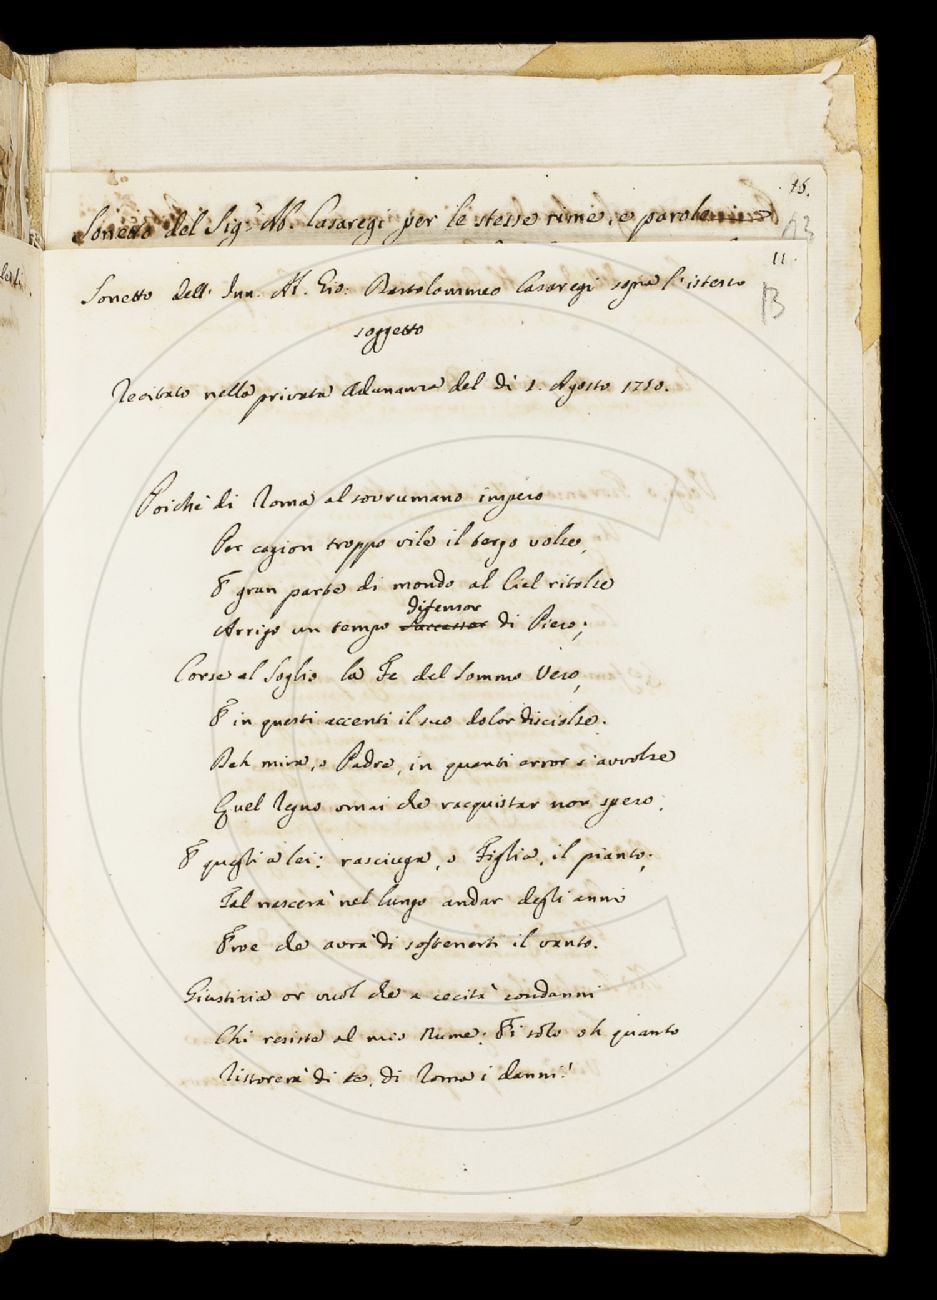 16.
Sonetto del Sig.r Ab. Casaregi per le stesse rime, e parole
13
11.
Sonetto dell' Inn. Ab. Gio: Bartolommeo Casaregi sopra l'istesso
B
soggetto
Recitato nella privata Adunanza del dì 1. Agosto 1750.
Poichè di Roma al sovrumano impero
Per cagion troppo vile il tergo volse,
E gran parte di mondo al Ciel ritolse
difensor
Arrigo un tempo Successor di Piero;
Corse al Soglio la Fe del Sommo Vero,
E in questi accenti il suo dolor disciolse.
Deh mira, o Padre, in quanti error s'avvolse
Quel Regno omai che racquistar non spero;
E quegli a lei: rasciuga, o Figlia, il pianto;
Tal nascerà nel lungo andar degli anni
Eroe che avrà di sostenerti il vanto.
Giustizia or vuol che a cecità condanni
Chi resiste al mio Nume: Ei solo oh quanto
Ristorerà di te, di Roma i danni!